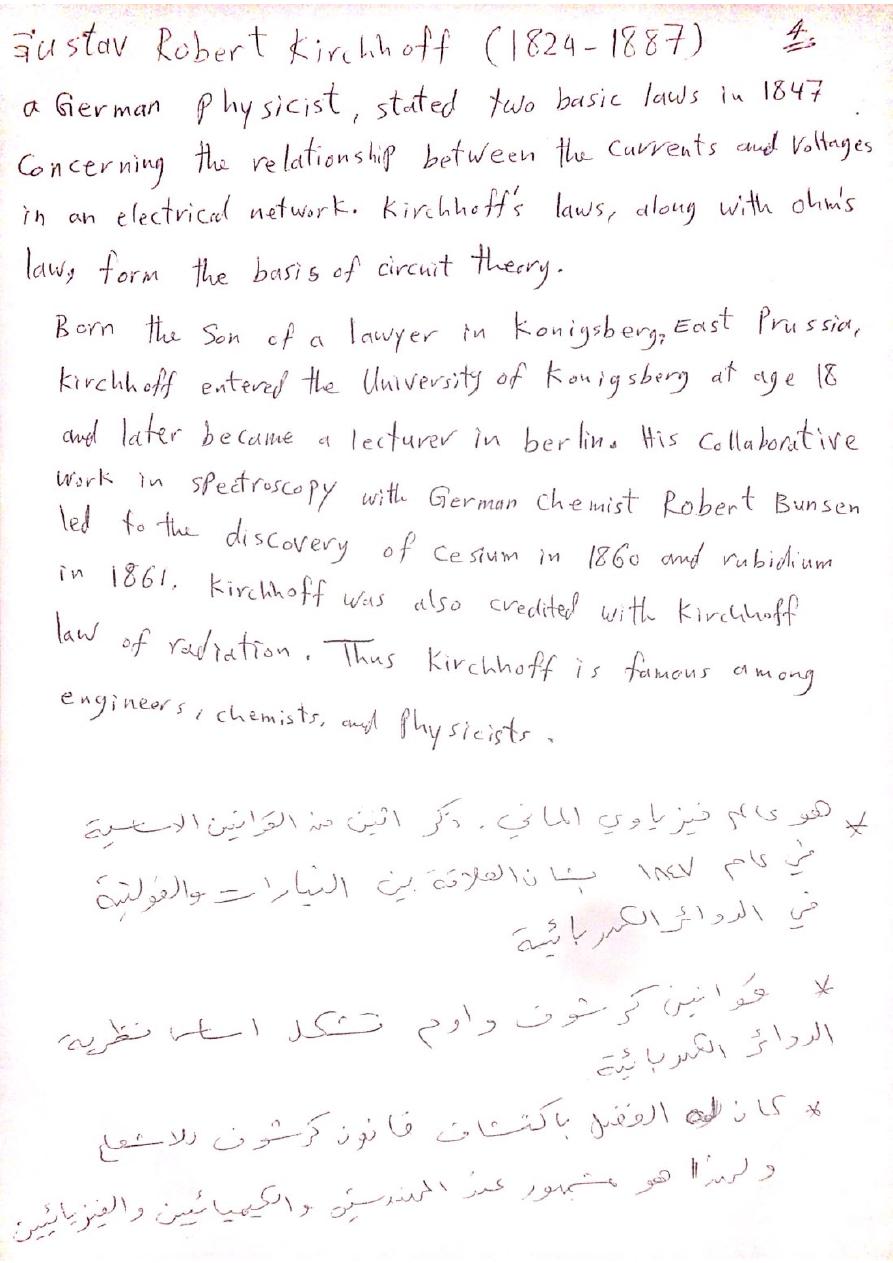 Gustav Robert Kirchhoff (1824-1887) 4.
a German Physicist, stated two basic laws in 1847
Concerning the relationship between the currents and Voltages
in an electrical network. Kirchhoff's laws, along with ohm's
law, form the basis of circuit theory.
Born the Son of a lawyer in Konigsberg, East Prussia,
Kirchhoff entered the University of Konigsberg at age 18
and later became a lecturer in berlin. His Collaborative
work in spectroscopy with German chemist Robert Bunsen
led to the discovery of cesium in 1860 and rubidium
in 1861. Kirchhoff was also credited with Kirchhoff
law of radiation. Thus Kirchhoff is famous among
engineers, chemists, and Physicists.
* هو عالم فيزياوي الماني. ذكر اثنين من القوانين الاساسية
في عام ١٨٤٧ بشان العلاقة بين التيارات والفولتية
في الدوائر الكهربائية
* قوانين كرشوف واوم تشكل اساس نظرية
الدوائر الكهربائية
* كان له الفضل باكتشاف قانون كرشوف للاشعاع
ولهذا هو مشهور عند المهندسين والكيميائيين والفيزيائيين